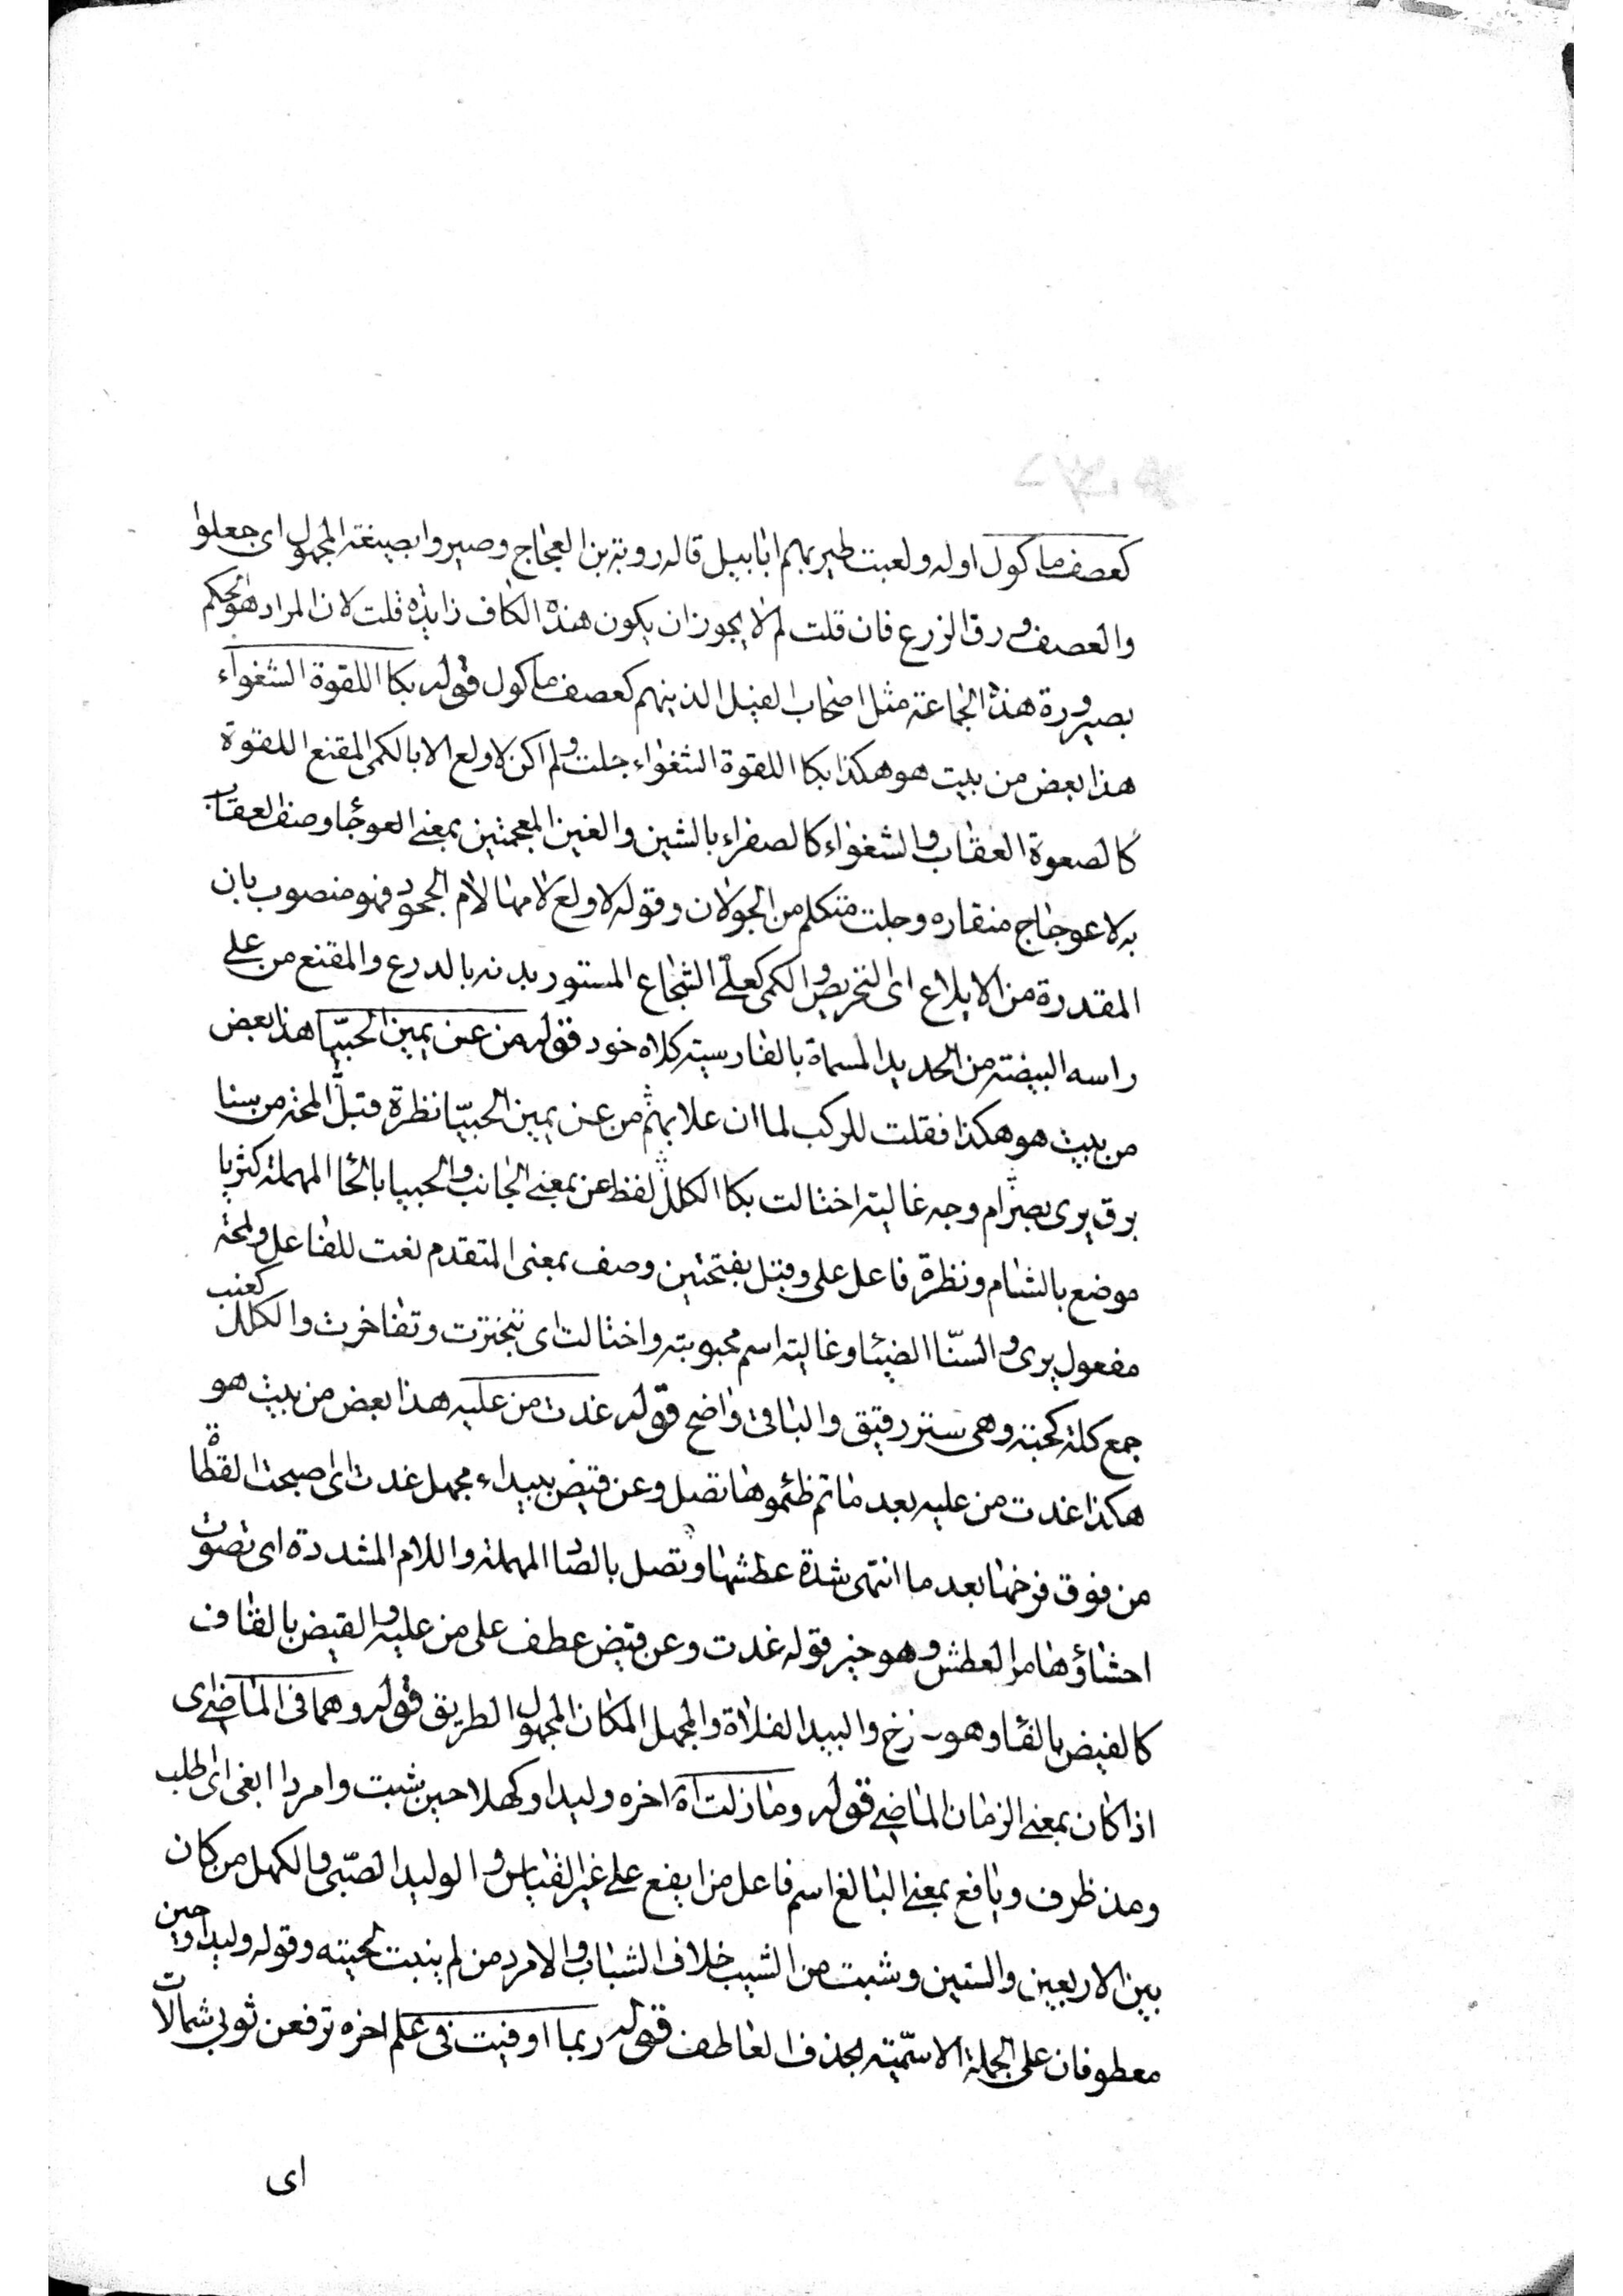 كعصف ماكول اوله ولعبت طير بهم ابابيل قاله روبة بن العجاج وصيروا بصيغة المجهول اى جعلوا
والعصف ورق الزرع فان قلت لم لا يجوز ان يكون هنذه الكاف زايده قلت لان المراد هو الحكم
بصيرورة هذه الجماعة مثل اصحاب الفيل الذينهم كعصف ماكول قوله بكا اللقوة الشغواء
هذا بعض من بيت هو هكذا بكا اللقوة الشغواء جلت ولم اكن لاولع الا بالكمى المقنع اللقوة
كالصعوة العقاب والشغواء كالصفراء بالشين والغين المعجمتين بمعنى العوجا وصف العقاب
به لاعوجاج منقاره وجلت متكلم من الجولان وقوله لاولع لامها لام الجحود فهو منصوب بان
المقدرة من الايلاع اى التحريص والكمى كعلىّ الشجاع المستور بدنه بالدرع والمقنع من على
راسه البيضة من الحديد المسماة بالفارسية كلاه خود قوله من عن يمين الحبيّا هذا بعض
من بيت هو هكذا فقلت للركب لما ان علا بهم من عن يمين الحبيّا نظرة قبلُ المحة من سنا
برق يرى بصرام وجه غالية اختالت بكا الكلل لفظ عن بمعنى الجانب والحبيا بالحا المهملة كثريا
موضع بالشام ونظرة فاعل على وقبل بفتحتين وصف بمعنى المتقدم نعت للفاعل ولمحة
مفعول يرى والسنّا الضيئا وغالية اسم محبوبته واختالت اى تبخترت وتفاخرت والكلل كعنب
جمع كلة كحبة وهى ستر رقيق والباقى واضح قوله غدت من عليه هذا بعض من بيت هو
هكذا غدت من عليه بعد ماتم ظئموها تصل وعن قيض ببيداء مجهل غدت اى اصبحت القطاة
من فوق فرخها بعد ما انتهى شدة عطشها وتصل بالصاد المهملة واللام المشددة اى تصوت
احشاؤها من العطش وهو خبر قوله غدت وعن قيض عطف على من عليه والقيض بالقاف
كالفيض بالفا وهو زخ والبيد الفلاة والمجهل المكان المجهول الطريق قوله وهما فى الماضى اى
اذا كان بمعنى الزمان الماضى قوله ومازلت اه اخره وليدا وكهلا حين شبت وامردا ابغى اى اطلب
ومذ ظرف ويافع بمعنى البالغ اسم فاعل من ايفع على غير القياس والوليد الصبّى والكهل من كان
بين الاربعين والستين وشبت من الشيب خلاف الشباب والامرد من لم ينبت لحيته وقوله وليدا وحين
معطوفان على الجملة الاسّمية بحذف العاطف قوله ربما اوفيت فى علم اخره ترفعن ثوبى شمالات
اى